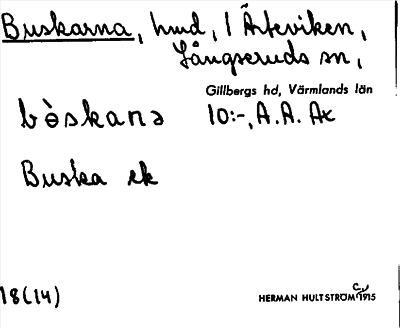 Buskarna, hmd, i Ärteviken,
Långseruds sn,
Gillbergs hd, Värmlands län
bòskanə 10:-, A.A. Ak
Buska ek
18(14)
HERMAN HULTSTRÖM 1915